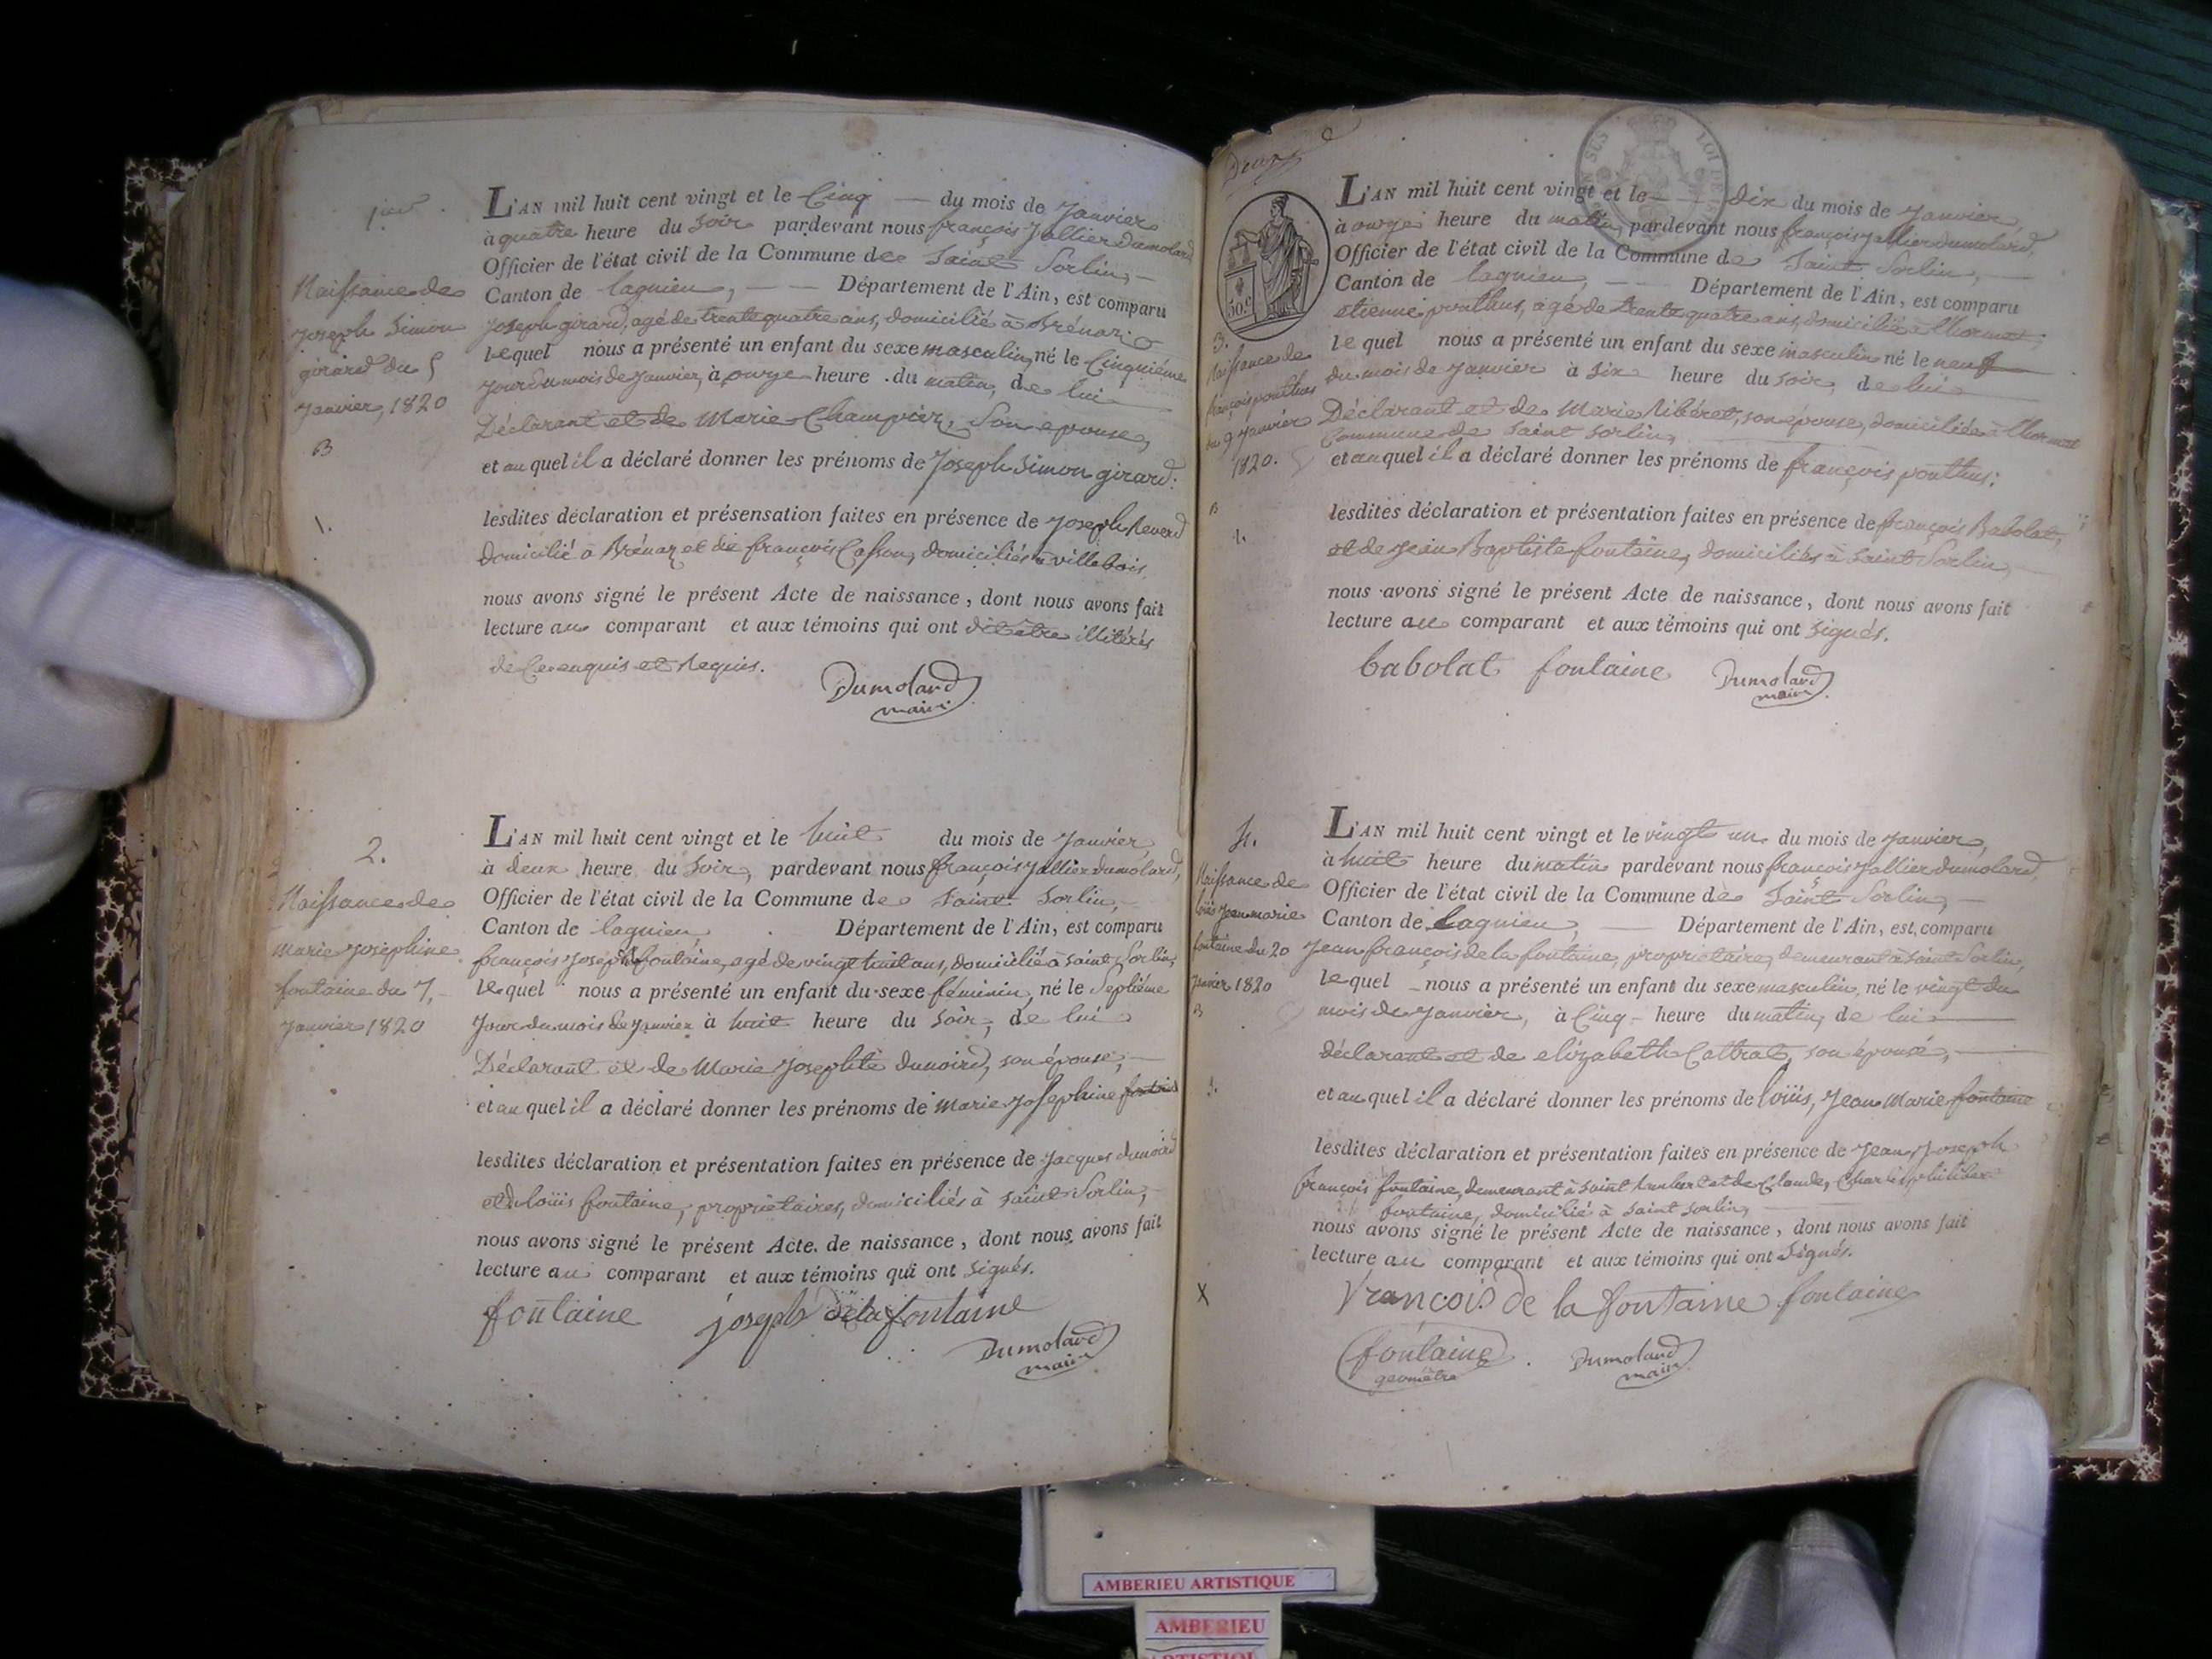 1er
Naissance de
Joseph Simon
girard du 5
Janvier, 1820
B
1.
L'AN mil huit cent vingt et le Cinq — du mois de Janvier
à quatre heure du Soir pardevant nous françois Jallier Dumolard
Officier de l'état civil de la Commune de Saint Sorlin, —
Canton de lagnieu, — — Département de l'Ain, est comparu
Joseph girard, agé de trente quatre ans, domicilié à Brénaz
lequel nous a présenté un enfant du sexe masculin, né le Cinquième
Jour du mois de Janvier, à onze heure du matin, de lui
Déclarant et de Marie Champier, Son epouse,
et au quel il a déclaré donner les prénoms de Joseph Simon girard:
lesdites déclaration et présensation faites en présence de Joseph Reverd
domicilié à Brénaz et de françois Casson, domiciliés à villebois
nous avons signé le présent Acte de naissance, dont nous avons fait
lecture au comparant et aux témoins qui ont dit être illitérés
de Ce enquis et Requis.
Dumolard
maire
2.
Naissance de
Marie Josephine
fontaine du 7,
Janvier 1820
L'AN mil huit cent vingt et le huit du mois de Janvier
à deux heure du Soir, pardevant nous françois Jallier dumolard,
Officier de l'état civil de la Commune de Saint Sorlin,
Canton de lagnieu, Département de l'Ain, est comparu
françois Joseph fontaine, agé de vingt huit ans, domicilié à Saint Sorlin,
lequel nous a présenté un enfant du sexe féminin, né le Septième
Jour du mois de Janvier à huit heure du Soir, de lui
Déclarant et de Marie Josephte dunoird, son épouse, —
et au quel il a déclaré donner les prénoms de Marie Josephine fontaine
lesdites déclaration et présentation faites en présence de Jacques dunoird
et de loüis fontaine, propriétaires, domiciliés à Saint Sorlin,
nous avons signé le présent Acte de naissance, dont nous avons fait
lecture au comparant et aux témoins qui ont Signés.
fontaine joseph de la fontaine
Dumolard
maire
Deux
SUS LOI DE
50.c
3.
Naissance de
françois ponthus
du 9 Janvier
1820.
B
1.
L'AN mil huit cent vingt et le — dix du mois de Janvier
à onze heure du matin, pardevant nous françois Jallier dumolard,
Officier de l'état civil de la Commune de Saint Sorlin,
Canton de lagnieu, — — Département de l'Ain, est comparu
etienne ponthus, agé de trente quatre ans, domicilié à
lequel nous a présenté un enfant du sexe masculin né le neuf
du mois de Janvier à Six heure du Soir, de lui
Déclarant et de Marie Ribéret, son épouse, domiciliée à
Commune de Saint Sorlin,
et au quel il a déclaré donner les prénoms de françois ponthus:
lesdites déclaration et présentation faites en présence de françois Babolat,
et de Jean Baptiste fontaine, domiciliés à Saint Sorlin,
nous avons signé le présent Acte de naissance, dont nous avons fait
lecture au comparant et aux témoins qui ont Signés.
babolat fontaine Dumolard
maire
4.
Naissance de
loüis Jean marie
fontaine du 20
Janvier 1820
B
1.
X
L'AN mil huit cent vingt et le vingt un du mois de Janvier,
à huit heure du matin pardevant nous françois Jallier dumolard,
Officier de l'état civil de la Commune de Saint Sorlin, —
Canton de Lagnieu, — Département de l'Ain, est comparu
Jean françois de la fontaine, propriétaire, demeurant à Saint Sorlin,
lequel nous a présenté un enfant du sexe masculin, né le vingt du
mois de Janvier, à Cinq heure du matin, de lui
déclarant et de elizabeth Cottrat, son épouse, —
et au quel il a déclaré donner les prénoms de loüis, Jean Marie fontaine
lesdites déclaration et présentation faites en présence de Jean Joseph
françois fontaine, demeurant à Saint et de Claude, Charles philibert
fontaine, domicilié à Saint Sorlin,
nous avons signé le présent Acte de naissance, dont nous avons fait
lecture au comparant et aux témoins qui ont Signés.
françois de la fontaine fontaine
fontaine
geomètre
Dumolard
maire
AMBERIEU ARTISTIQUE
AMBERIEU
ARTISTIQUE